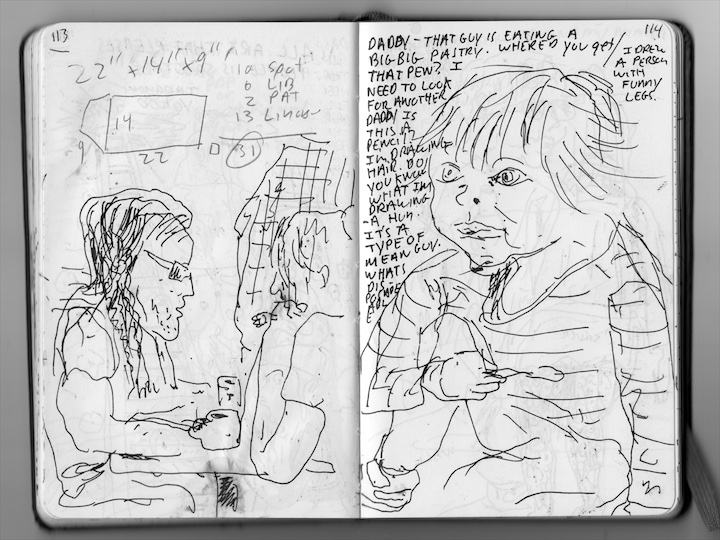 113
22" x 14" x 9"
10 spot
6 LIB
2 PAT
13
14
9
22
31
114
DADDY - THAT GUY IS EATING A
BIG BIG PASTRY. WHERE'D YOU get
THAT PEN? I
NEED TO LOOK
FOR ANOTHER
DADDY IS
THIS A
PENCIL?
IM DRAWING
HAIR. DO
YOU KNOW
WHAT IM
DRAWING
- A HUN.
IT'S A
TYPE OF
MEAN GUY.
WHATS
DIS
I DREW
A PERSON
WITH
FUNNY
LEGS.